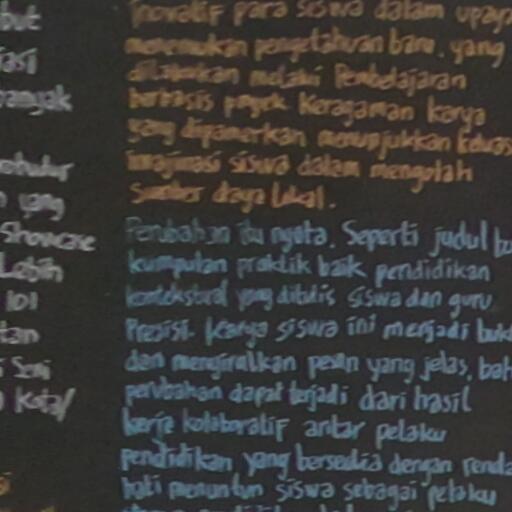 but
inovatif para siswa dalam upaya
menemukan pengetahuan baru, yang
dilakukan melalui Pembelajaran
berbasis proyek. Keragaman karya
yang dipamerkan menunjukkan keluas
imajinasi siswa dalam mengolah
sumber daya lokal.
yang
Showcase
Lebih
101
tan
Seni
Kota/
Perubahan itu nyata. Seperti judul bu
kumpulan praktik baik pendidikan
kontekstual yang ditulis siswa dan guru
Presisi. Karya siswa ini menjadi bukt
dan mengirimkan pesan yang jelas, bah
perubahan dapat terjadi dari hasil
kerja kolaboratif antar pelaku
pendidikan yang bersedia dengan renda
hati menuntun siswa sebagai pelaku